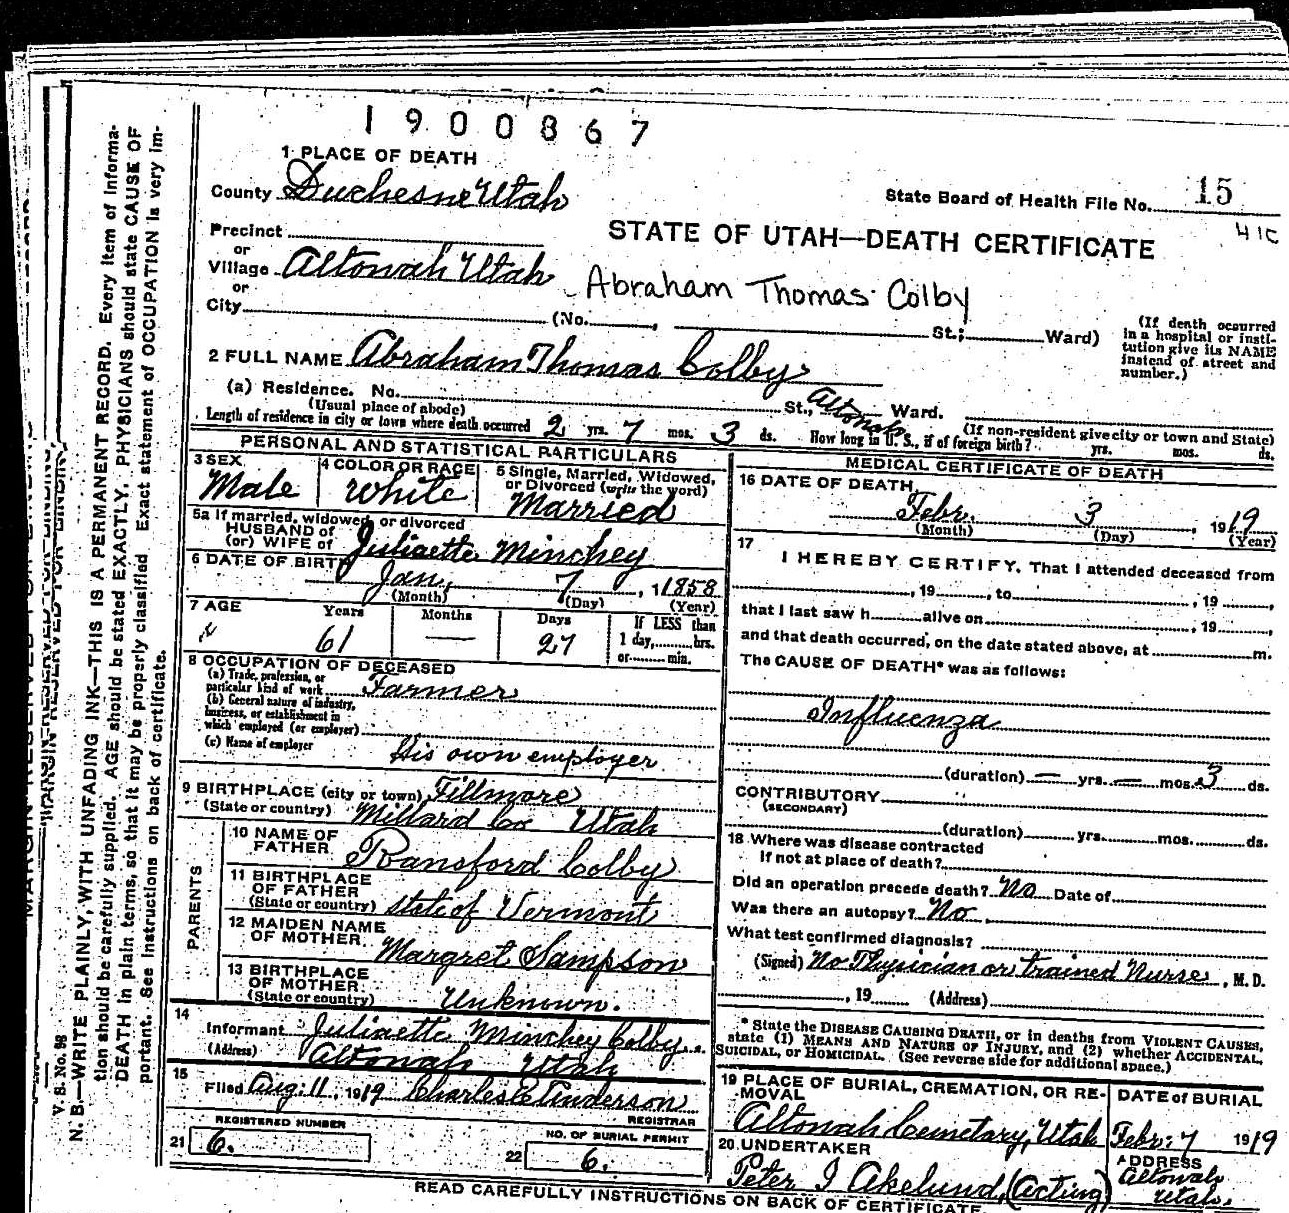 1900867
1 PLACE OF DEATH
County Duchesne Utah
State Board of Health File No. 15
41C
Precinct
STATE OF UTAH—DEATH CERTIFICATE
or
Village Altonah Utah
Abraham Thomas Colby
or
City (No. , St.; Ward)
(If death occurred in a hospital or institution give its NAME instead of street and number.)
2 FULL NAME Abraham Thomas Colby
(a) Residence. No. St., Altonah Ward.
(Usual place of abode) (If non-resident give city or town and State)
Length of residence in city or town where death occurred 2 yrs. 7 mos. 3 ds. How long in U. S., if of foreign birth? yrs. mos. ds.
PERSONAL AND STATISTICAL PARTICULARS
3 SEX
Male
4 COLOR OR RACE
White
5 Single, Married, Widowed, or Divorced (write the word)
Married
5a If married, widowed, or divorced
HUSBAND of
(or) WIFE of Juliaette Minchey
6 DATE OF BIRTH
Jan. 7, 1858
(Month) (Day) (Year)
7 AGE Years Months Days If LESS than
61 — 27 1 day, hrs.
or min.
8 OCCUPATION OF DECEASED
(a) Trade, profession, or
particular kind of work Farmer
(b) General nature of industry,
business, or establishment in
which employed (or employer)
(c) Name of employer His own employer
9 BIRTHPLACE (city or town) Fillmore
(State or country) Millard Co Utah
PARENTS
10 NAME OF
FATHER Ransford Colby
11 BIRTHPLACE
OF FATHER
(State or country) State of Vermont
12 MAIDEN NAME
OF MOTHER Margret Sampson
13 BIRTHPLACE
OF MOTHER
(State or country) Unknown.
14
Informant Juliaette Minchey Colby
(Address) Altonah Utah
15
Filed Aug. 11, 1919 Charles E Anderson
REGISTRAR
REGISTERED NUMBER
21 6.
NO. OF BURIAL PERMIT
22 6.
MEDICAL CERTIFICATE OF DEATH
16 DATE OF DEATH
Febr. 3, 1919
(Month) (Day) (Year)
17
I HEREBY CERTIFY, That I attended deceased from
, 19 , to , 19 ,
that I last saw h alive on , 19 ,
and that death occurred, on the date stated above, at m.
The CAUSE OF DEATH* was as follows:
Influenza
(duration) — yrs. — mos. 3 ds.
CONTRIBUTORY
(SECONDARY)
(duration) yrs. mos. ds.
18 Where was disease contracted
if not at place of death?
Did an operation precede death? No Date of
Was there an autopsy? No
What test confirmed diagnosis?
(Signed) No Physician or trained Nurse, M. D.
, 19 (Address)
* State the DISEASE CAUSING DEATH, or in deaths from VIOLENT CAUSES,
state (1) MEANS AND NATURE OF INJURY, and (2) whether ACCIDENTAL,
SUICIDAL, or HOMICIDAL. (See reverse side for additional space.)
19 PLACE OF BURIAL, CREMATION, OR RE-
MOVAL
Altonah Cemetary, Utah
DATE of BURIAL
Febr. 7 1919
20 UNDERTAKER
Peter I Akelund (Acting)
ADDRESS
Altonah
Utah.
READ CAREFULLY INSTRUCTIONS ON BACK OF CERTIFICATE.
V. S. No. 98
N. B.—WRITE PLAINLY, WITH UNFADING INK—THIS IS A PERMANENT RECORD. Every item of informa-
tion should be carefully supplied. AGE should be stated EXACTLY. PHYSICIANS should state CAUSE OF
DEATH in plain terms, so that it may be properly classified. Exact statement of OCCUPATION is very im-
portant. See instructions on back of certificate.
MARGIN RESERVED FOR BINDING